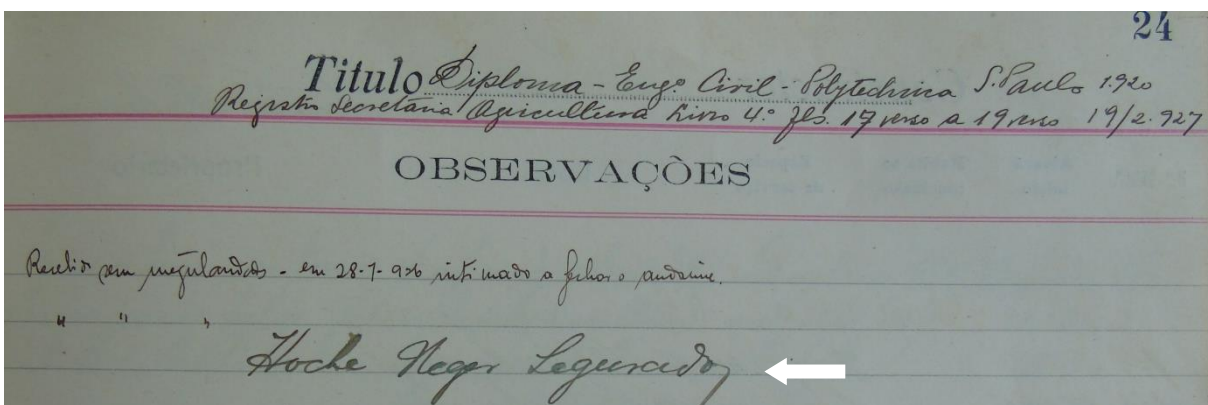 24
Titulo Diploma - Engº Civil - Polytechnica S. Paulo 1.920
Registro Secretaria Agricultura Livro 4º fls. 17 verso a 19 verso 19/2.927
OBSERVAÇÒES
sem - em 28-7-926 intimado a fechar o andaime.
" " "
Hoche Neger Segurado